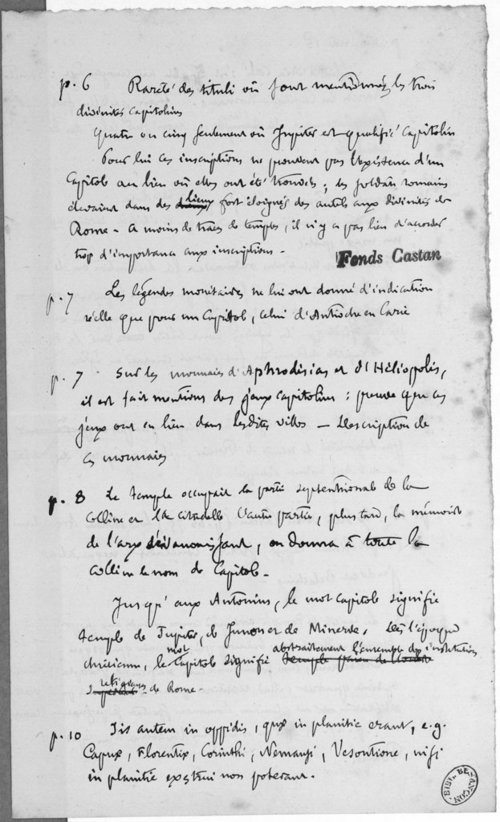 p. 6 Rareté des tituli où sont mentionnées les trois
divinités Capitolines
Quatre ou cinq seulement où Jupiter est qualifié Capitolin
Pour lui ces inscriptions ne prouvent pas l'existence d'un
Capitole au lieu où elles ont été trouvées ; les soldats romains
élevaient dans des lieux fort éloignés des autels aux divinités de
Rome - A moins de traces de temples, il n'y a pas lieu d'accorder
trop d'importance aux inscriptions -
Fonds Castan
p. 7 Les légendes monétaires ne lui ont donné d'indication
réelle que pour un Capitole, celui d'Antioche en Carie
p. 7 Sur les monnaies d'Aphrodisias et d'Héliopolis,
il est fait mentions des jeux capitolins : preuve que ces
jeux ont eu lieu dans lesdites villes — Description de
ces monnaies
p. 8 Le temple occupait la partie septentrionale de la
colline et la citadelle l'autre partie, plus tard, la mémoire
de l'arx s'évanouissant, on donna à toute la
colline le nom de Capitole -
Jusqu'aux Antonins, le mot Capitole signifie
temple de Jupiter, de Junon et de Minerve. Dès l'époque
chrétienne, le mot Capitole signifie abstraitement l'ensemble des institutions
religieuses de Rome -
p. 10 Iis autem in oppidis, quæ in planitie erant, e.g.
Capuæ, Florentiæ, Corinthi, Nemausi, Vesontione, nisi
in planitie exstrui non poterant.